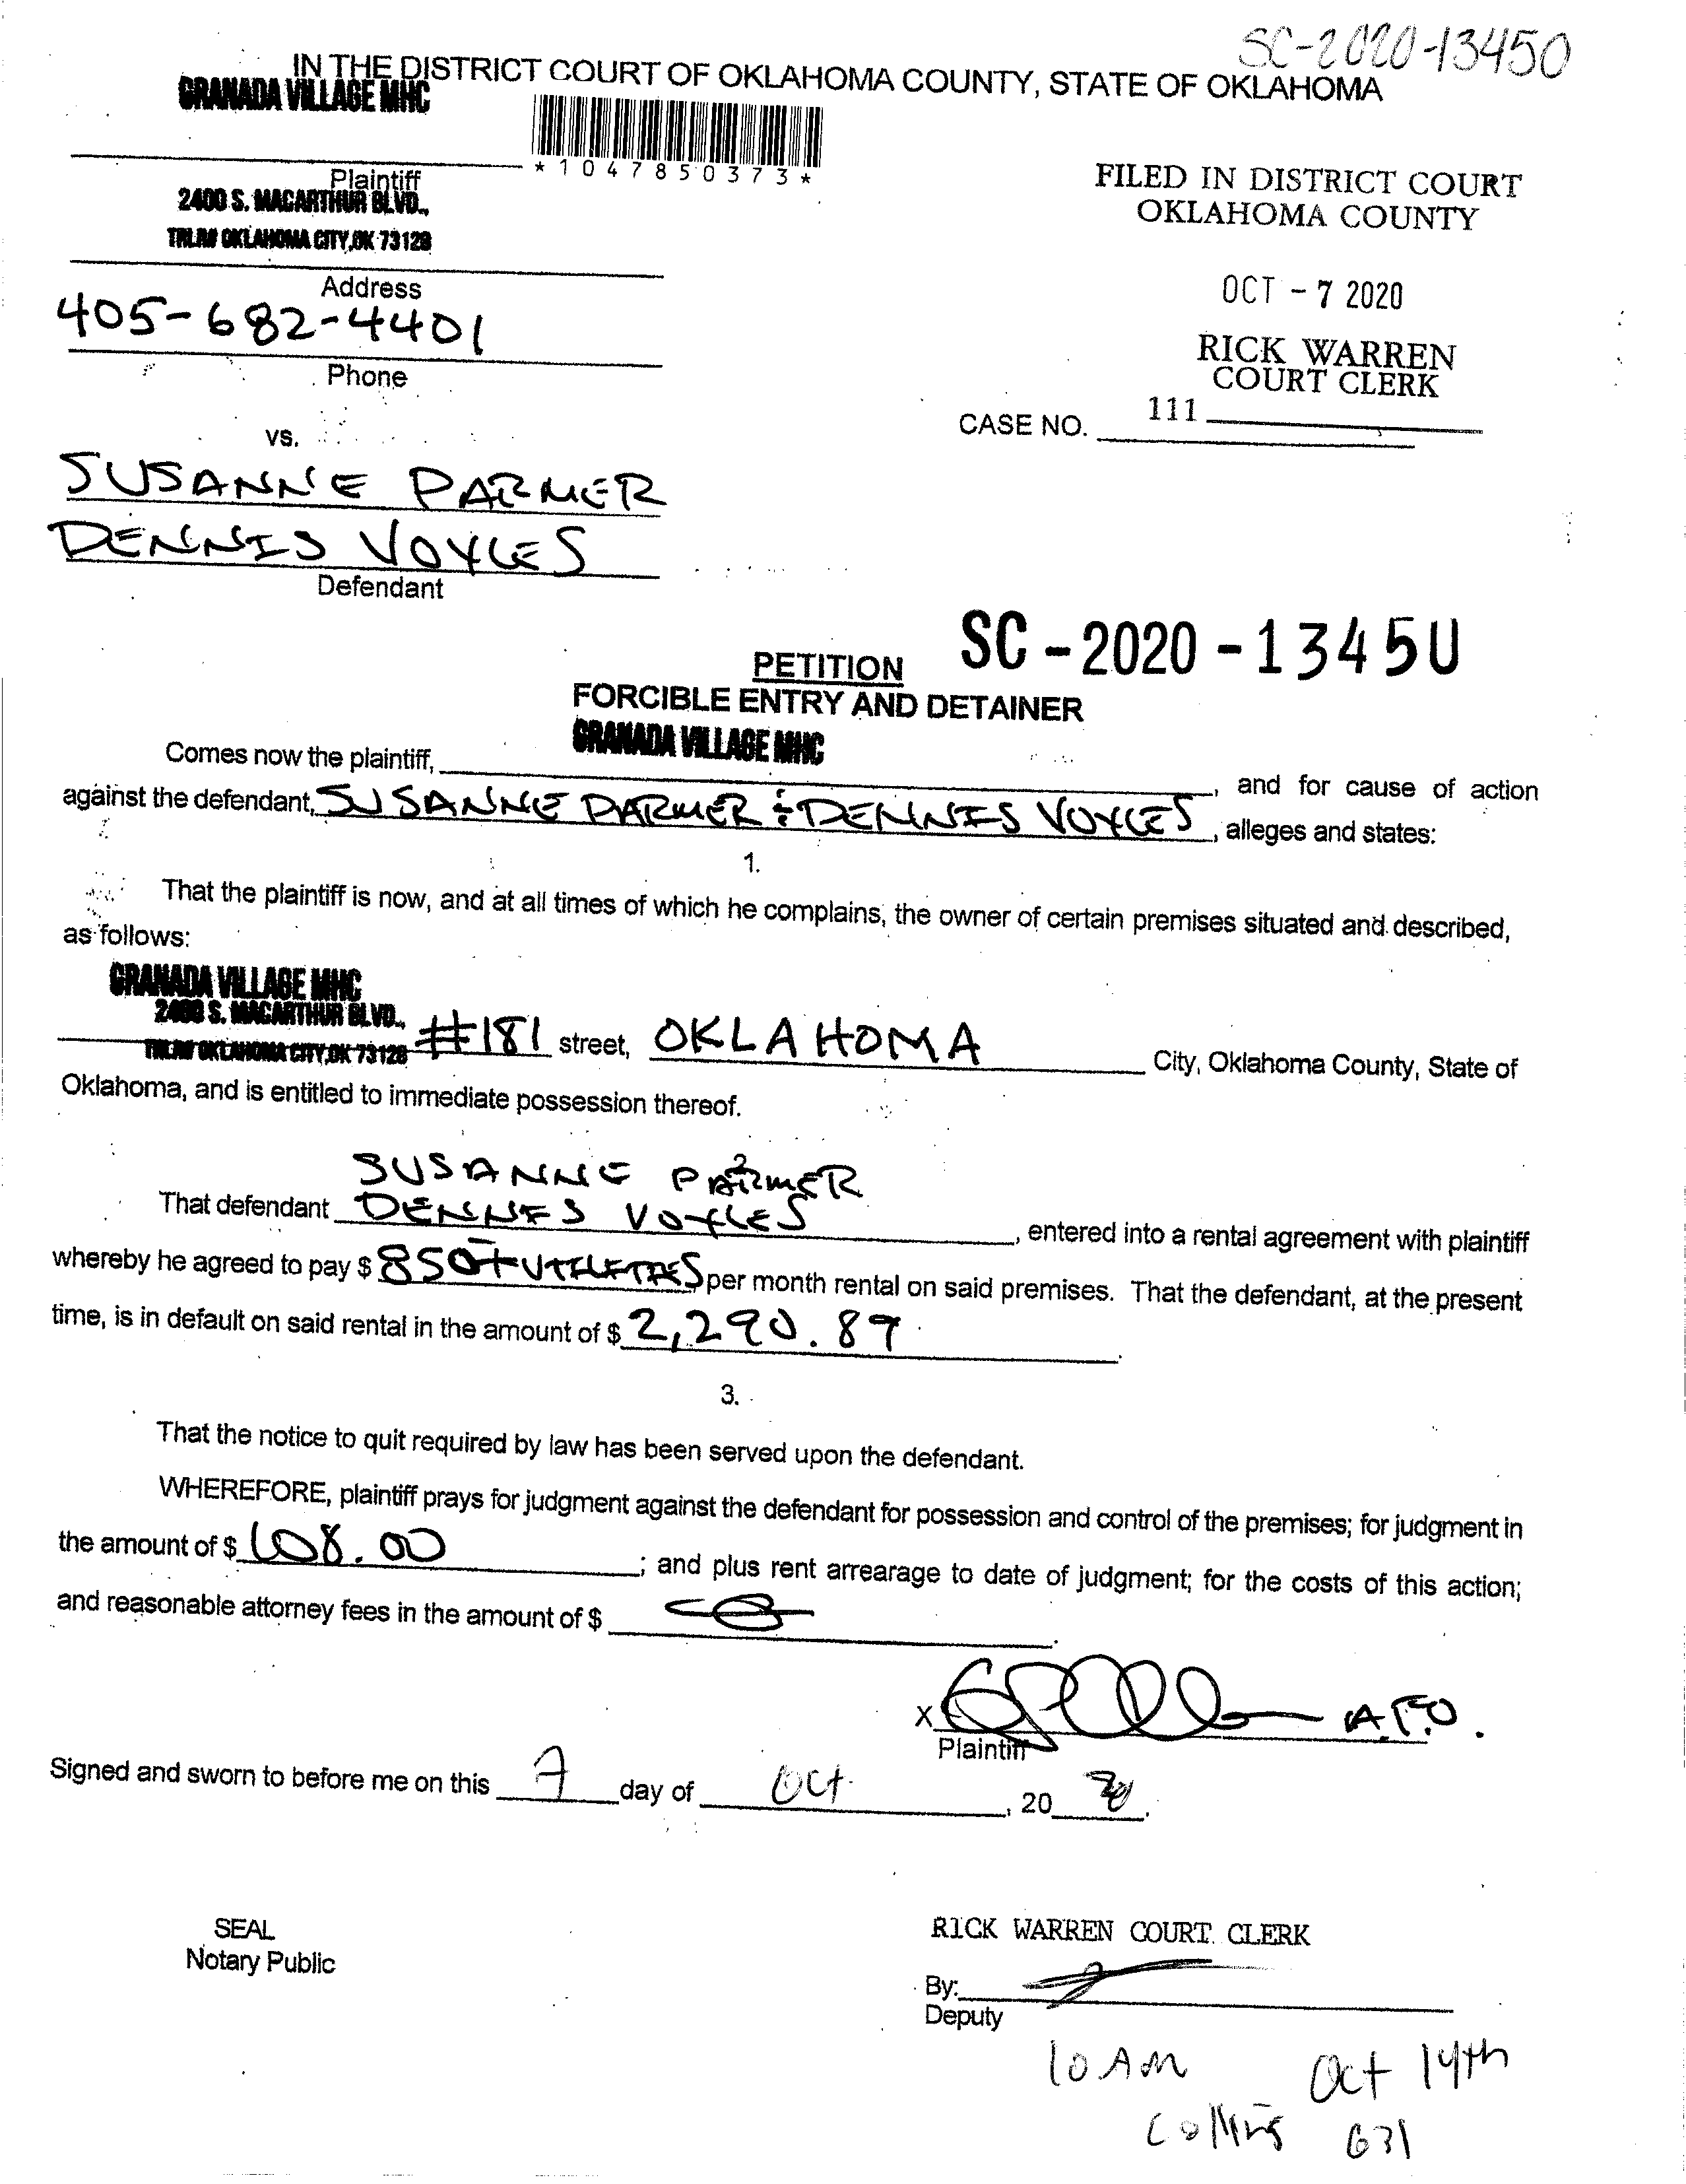 SC-2020-13450
IN THE DISTRICT COURT OF OKLAHOMA COUNTY, STATE OF OKLAHOMA
GRANADA VILLAGE MHC
*1047850373*
Plaintiff
2400 S. MACARTHUR BLVD.,
TRLR# OKLAHOMA CITY, OK 73128
Address
405-682-4401
Phone
FILED IN DISTRICT COURT
OKLAHOMA COUNTY
OCT - 7 2020
RICK WARREN
COURT CLERK
111
CASE NO.
vs.
SUSANNE PARMER
DENNIS VOYLES
Defendant
SC-2020-1345U
PETITION
FORCIBLE ENTRY AND DETAINER
GRANADA VILLAGE MHC
Comes now the plaintiff, , and for cause of action
against the defendant, SUSANNE PARMER & DENNIS VOYLES, alleges and states:
1.
That the plaintiff is now, and at all times of which he complains, the owner of certain premises situated and described,
as follows:
GRANADA VILLAGE MHC
2400 S. MACARTHUR BLVD.,
TRLR# OKLAHOMA CITY, OK 73128 #181 street, OKLAHOMA City, Oklahoma County, State of
Oklahoma, and is entitled to immediate possession thereof.
2
SUSANNE PARMER
That defendant DENNIS VOYLES, entered into a rental agreement with plaintiff
whereby he agreed to pay $ 850+ UTILITIES per month rental on said premises. That the defendant, at the present
time, is in default on said rental in the amount of $ 2,290.89.
3.
That the notice to quit required by law has been served upon the defendant.
WHEREFORE, plaintiff prays for judgment against the defendant for possession and control of the premises; for judgment in
the amount of $ 108.00; and plus rent arrearage to date of judgment; for the costs of this action;
and reasonable attorney fees in the amount of $ .
X
Plaintiff
Signed and sworn to before me on this 7 day of Oct, 20 20.
SEAL
Notary Public
RICK WARREN COURT CLERK
By:
Deputy
10 AM Oct 14th
Collins 631